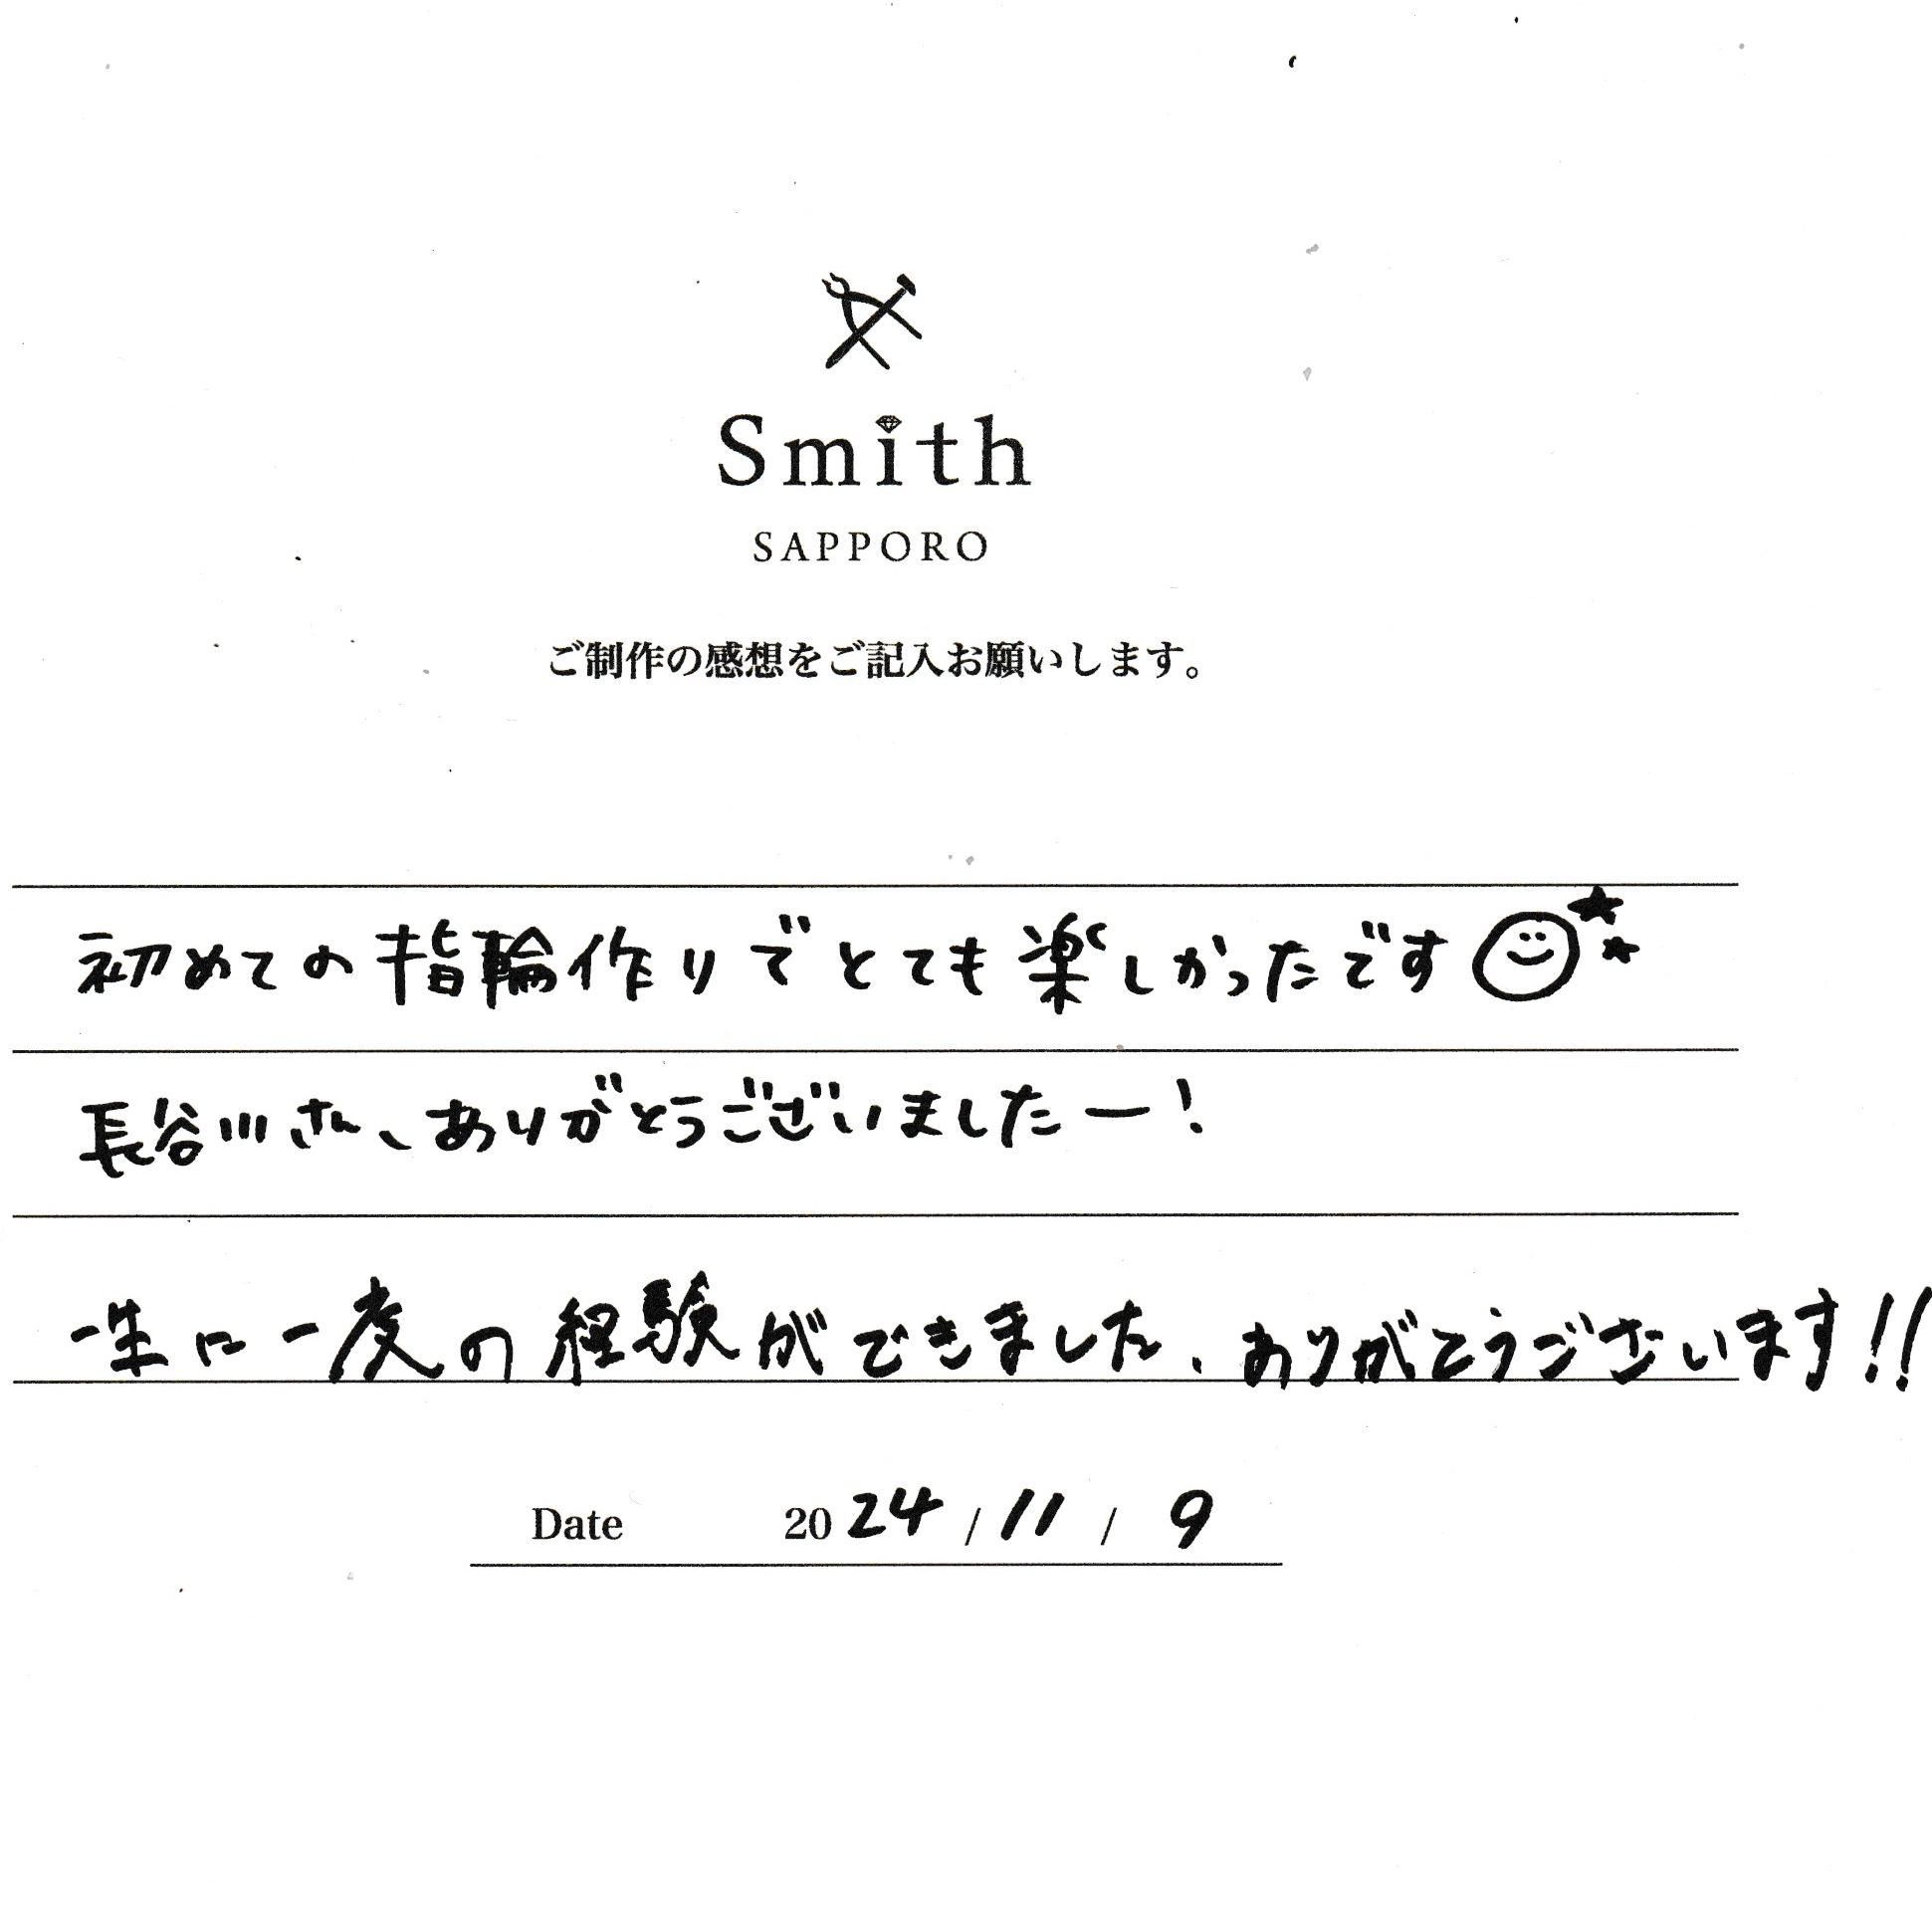 Smith
SAPPORO
ご制作の感想をご記入お願いします。
初めての指輪作りでとても楽しかったです
長谷川さん、ありがとうございましたー!
一生に一度の経験ができました、ありがとうございます!!
Date 2024/11/9